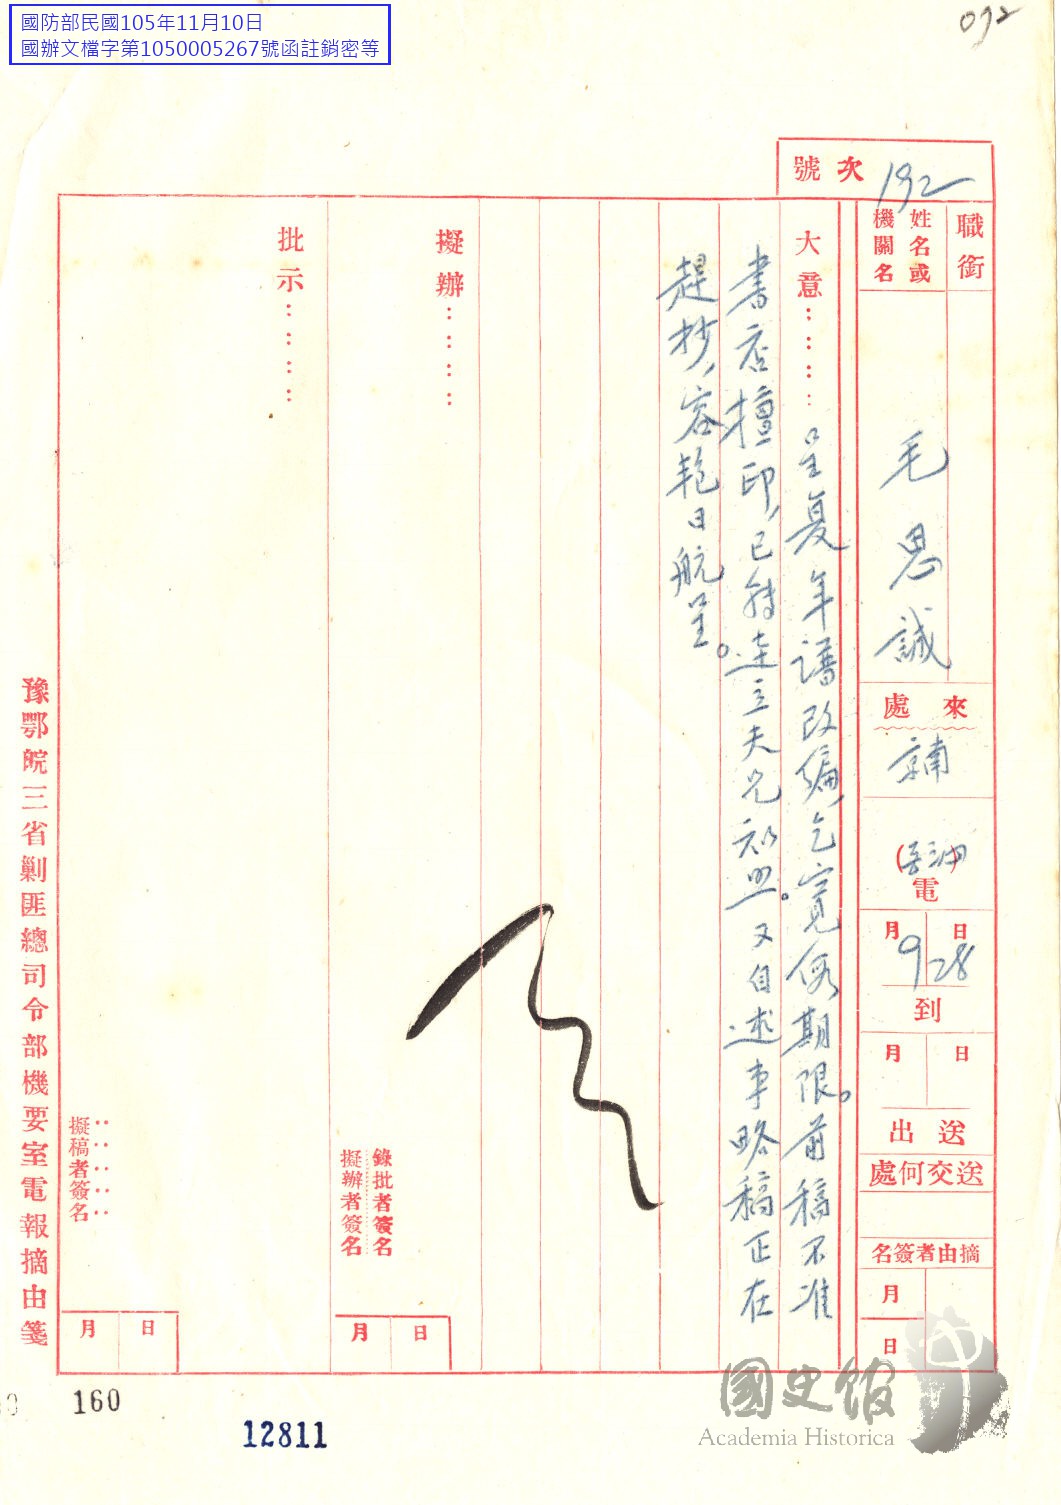 國防部民國105年11月10日
國辦文檔字第1050005267號函註銷密等
092
號次 192
職銜
姓名或
機關名
毛思誠
來處
電
月 日
9 28
到
月 日
送出
送交何處
摘由者簽名
月
日
大意⋯⋯呈复年譜改編，乞寬假期限。前稿不准
書店擅印，已轉達立夫兄知照。又自述事略稿正在
趕抄，容艳日航呈。
擬辦⋯⋯
錄批者簽名
擬辦者簽名
月 日
批示⋯⋯
擬稿者簽名
月 日
豫鄂皖三省剿匪總司令部機要室電報摘由箋
160
12811
國史館
Academia Historica